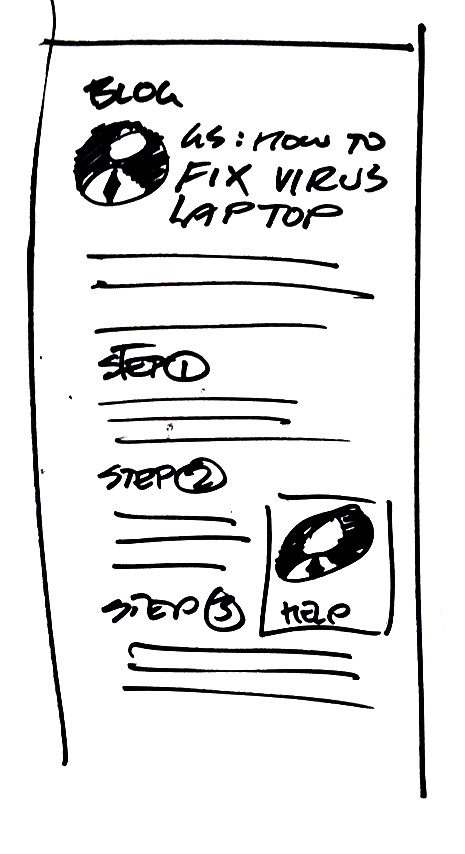 BLOG
GS: HOW TO
FIX VIRUS
LAPTOP
STEP 1
STEP 2
STEP 3
HELP